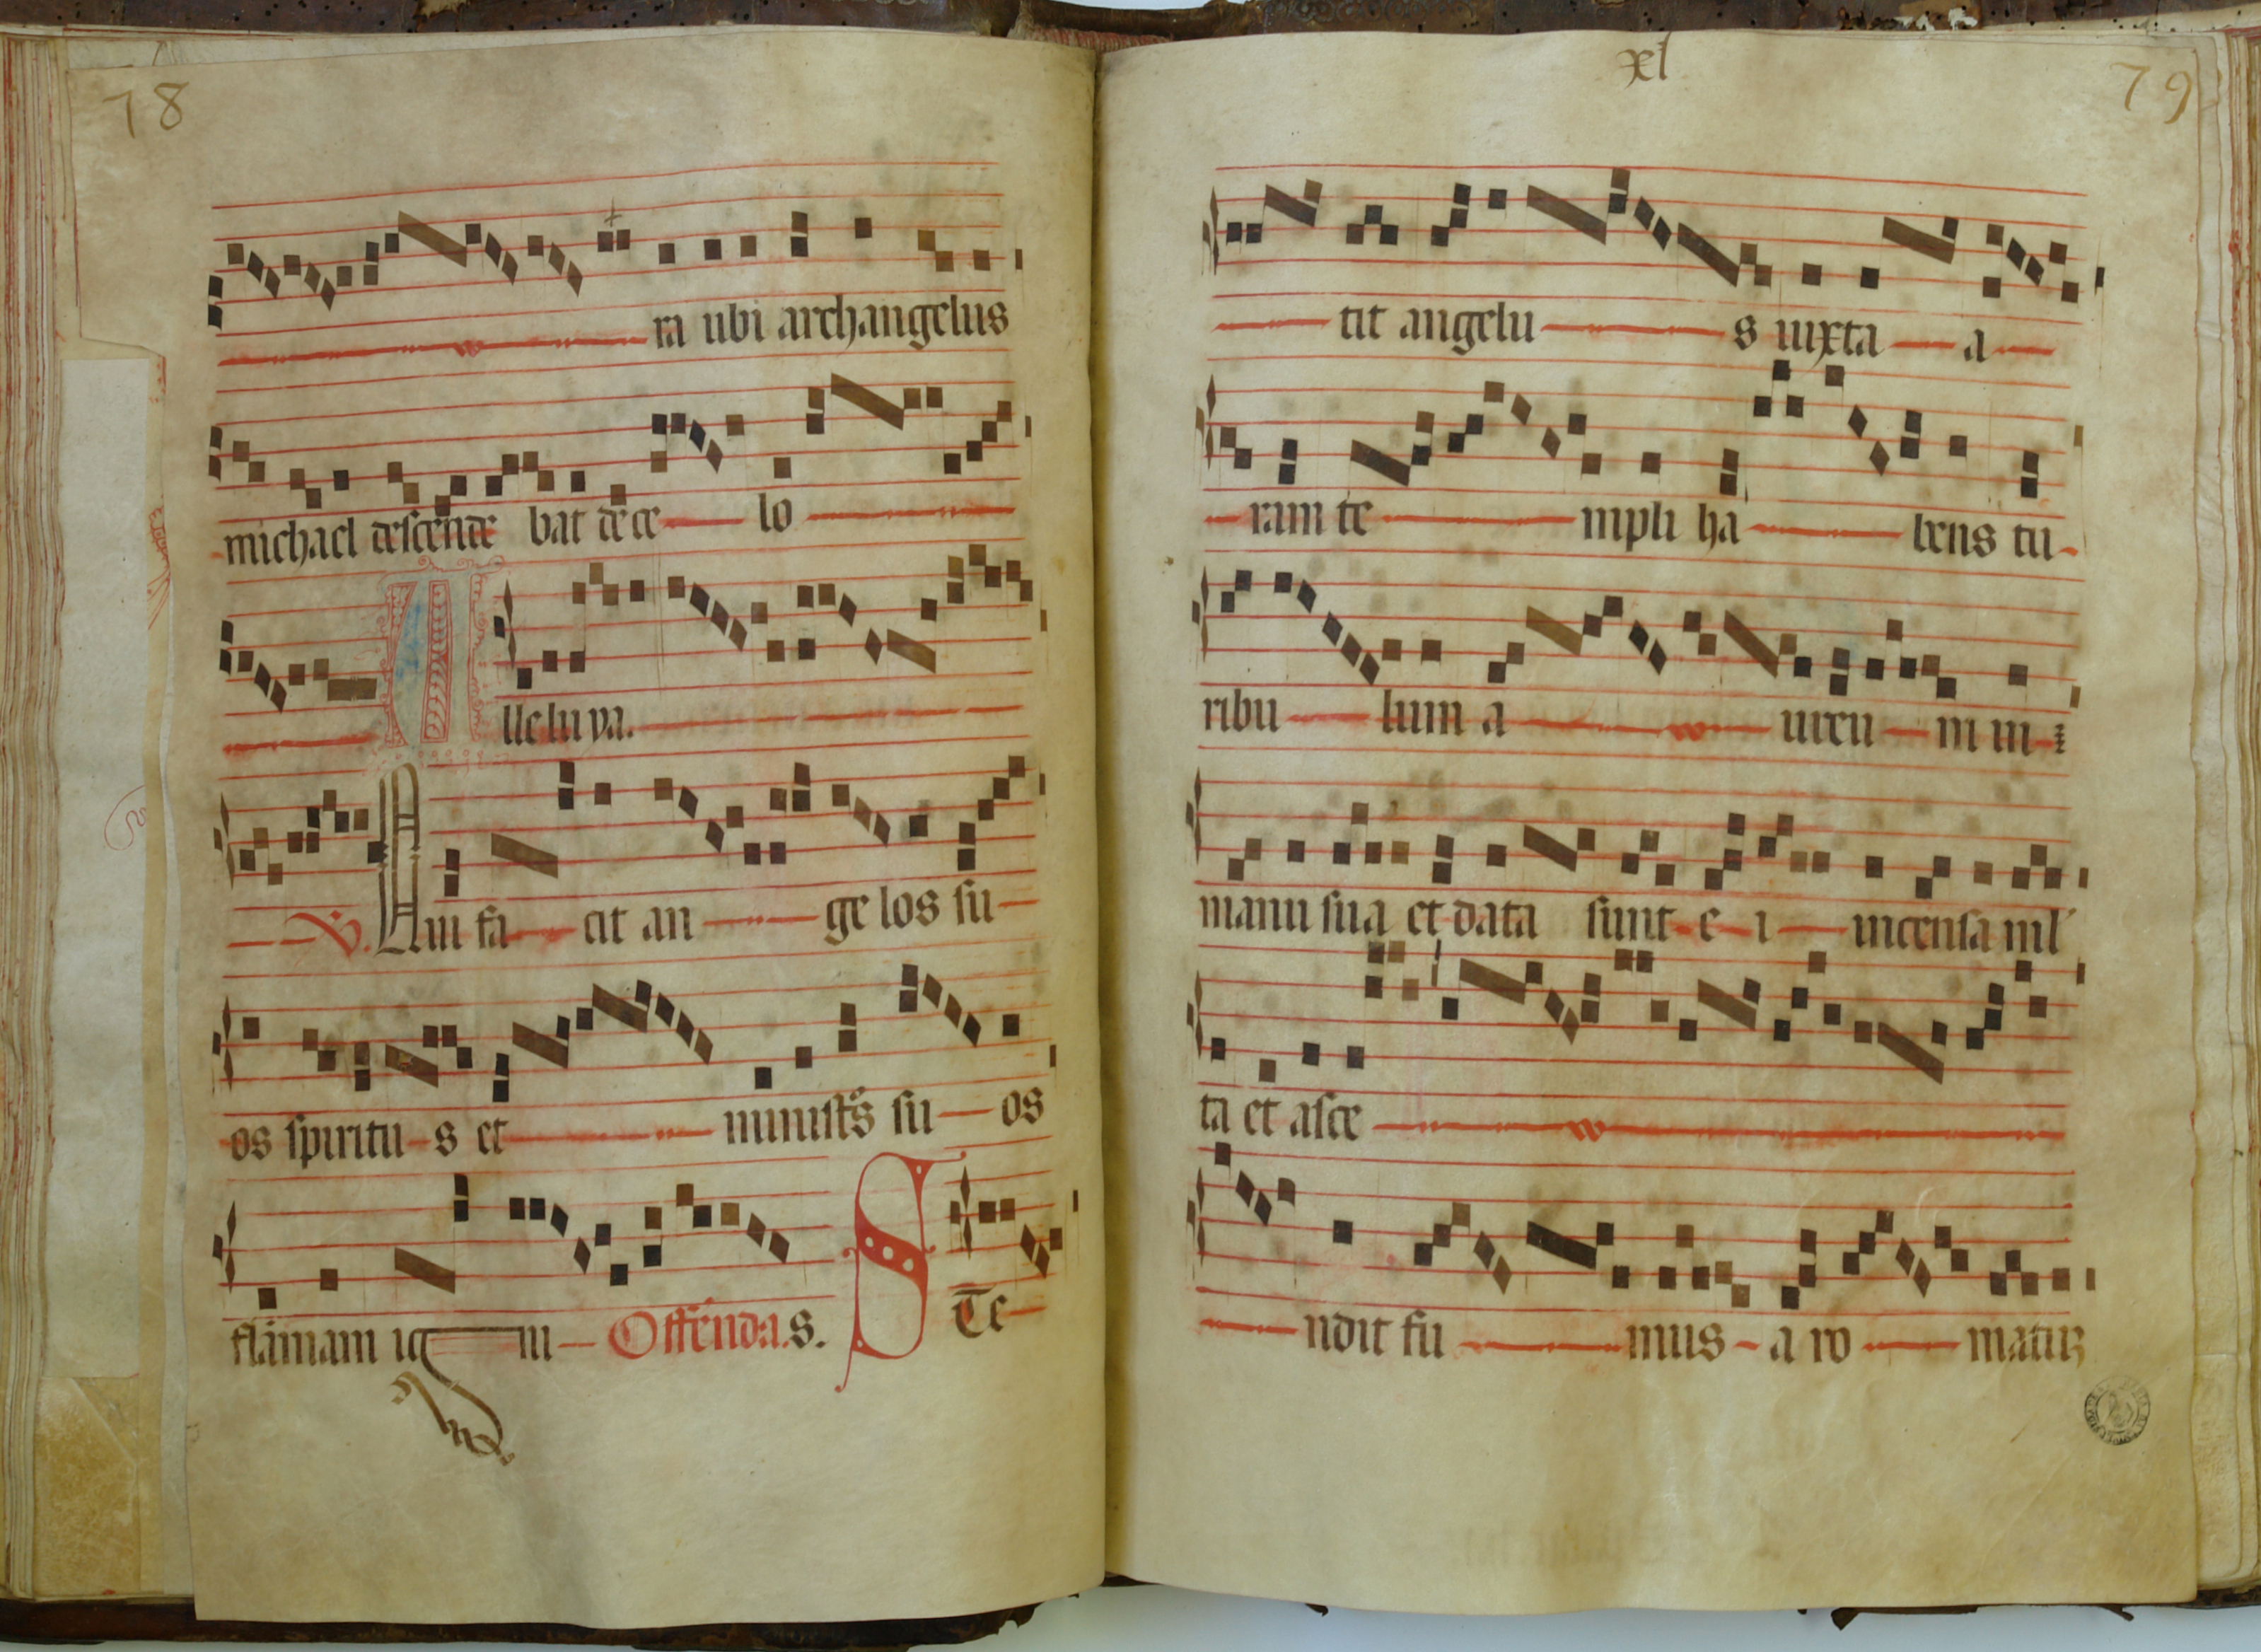 78
ra ubi archangelus
michael descende bat de ce lo
A lleluya.
℣. Qui fa cit an ge los su
os spiritu s et ministr̃s su os
flāmam ig ni Offerenda. S Te
xl
79
tit angelu s iuxta a
ram te mpli ha bens tu
ribu lum a ureu m in
manu sua et data sunt e i incensa ml
ta et asce
ndit fu mus a ro matuꝫ